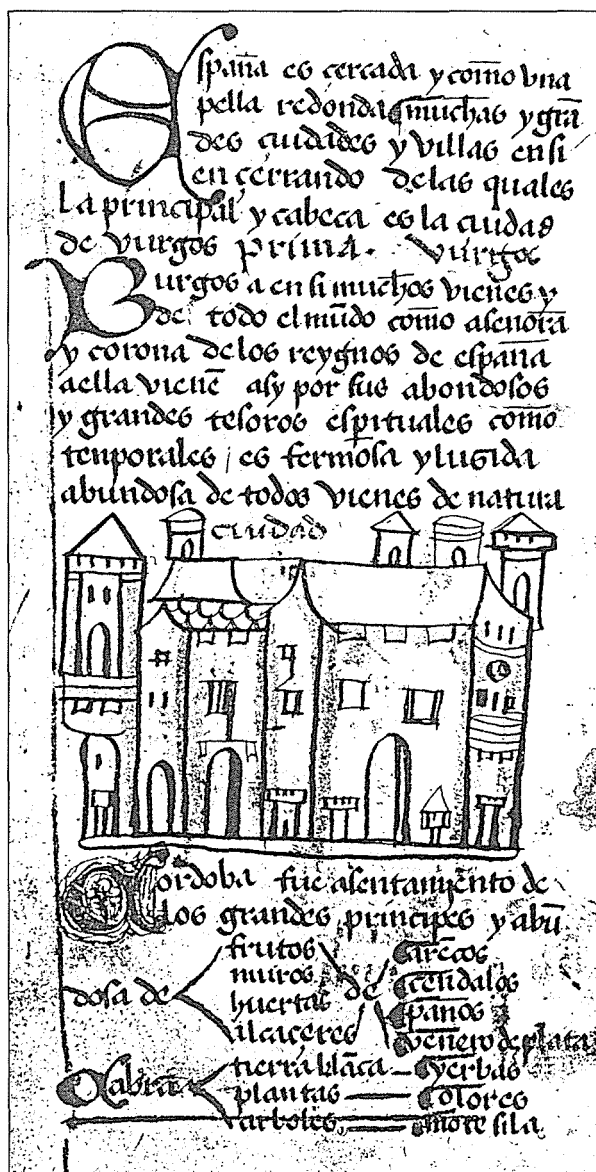 España es cercada y como vna
pella redonda muchas y grā
des ciudades y villas en si
en çerrando de las quales
La principal y cabeca es la ciudad
de vurgos prima. vurgos
Burgos a en si muchos vienes y
de todo el mūdo como a señora
y corona de los reygnos de españa
a ella vienē asy por sus abondosos
y grandes tesoros esp̄rituales como
tenporales / es fermosa y lusida
abundosa de todos vienes de natura
ciudad
Cordoba fue asentamyento de
los grandes principes y abū
dosa de
frutos
muros
huertas
alcaçeres
de
arecos
cendalos
panos
venero de plata
Cabra
tierra blāca — yerbas
plantas — colores
arboles — more sila